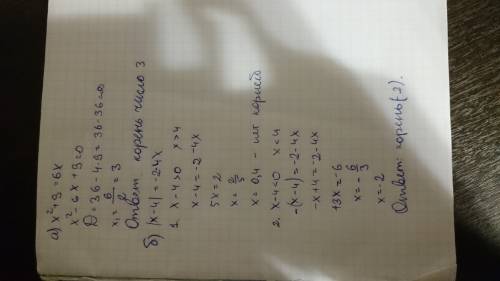 а) x²+9=6x
x²-6x+9=0
D=36-4·9=36-36=0
x₁=6/2=3
Ответ корень число 3
б) |x-4|=-2-4x
1. x-4>0 x>4
x-4=-2-4x
5x=2
x=2/5
x=0,4 - нет корней
2. x-4<0 x<4
-(x-4)=-2-4x
-x+4=-2-4x
+3x=-6
x=-6/3
x=-2
Ответ: корень(-2).